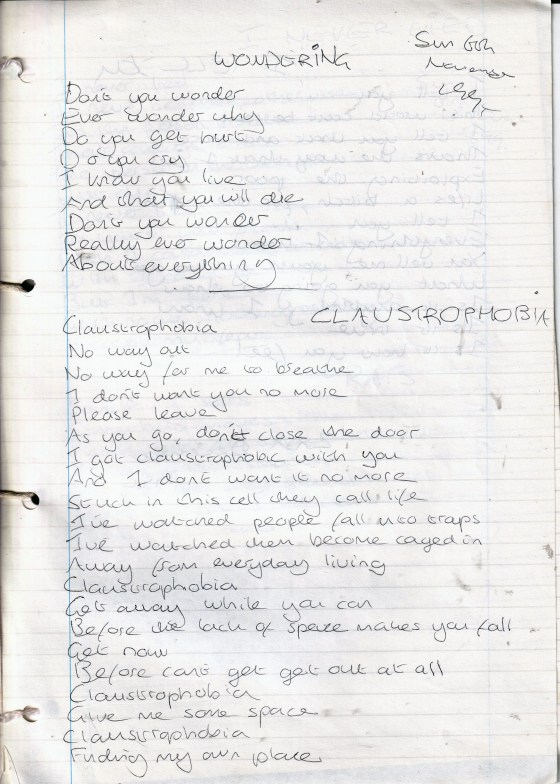 WONDERING
Sun 6th
November
Don't you wonder
Ever wonder why
Do you get hurt
Do you cry
I know you live
And that you will die
Don't you wonder
Really ever wonder
About everything
CLAUSTROPHOBIA
Claustrophobia
No way out
No way for me to breathe
I don't want you no more
Please leave
As you go, don't close the door
I got claustrophobic with you
And I don't want it no more
Stuck in this cell they call life
I've watched people fall into traps
I've watched them become caged in
Away from everyday living
Claustrophobia
Get away while you can
Before the lack of space makes you fall
Get now
Before cant get get out at all
Claustrophobia
Give me some space
Claustrophobia
Finding my own place